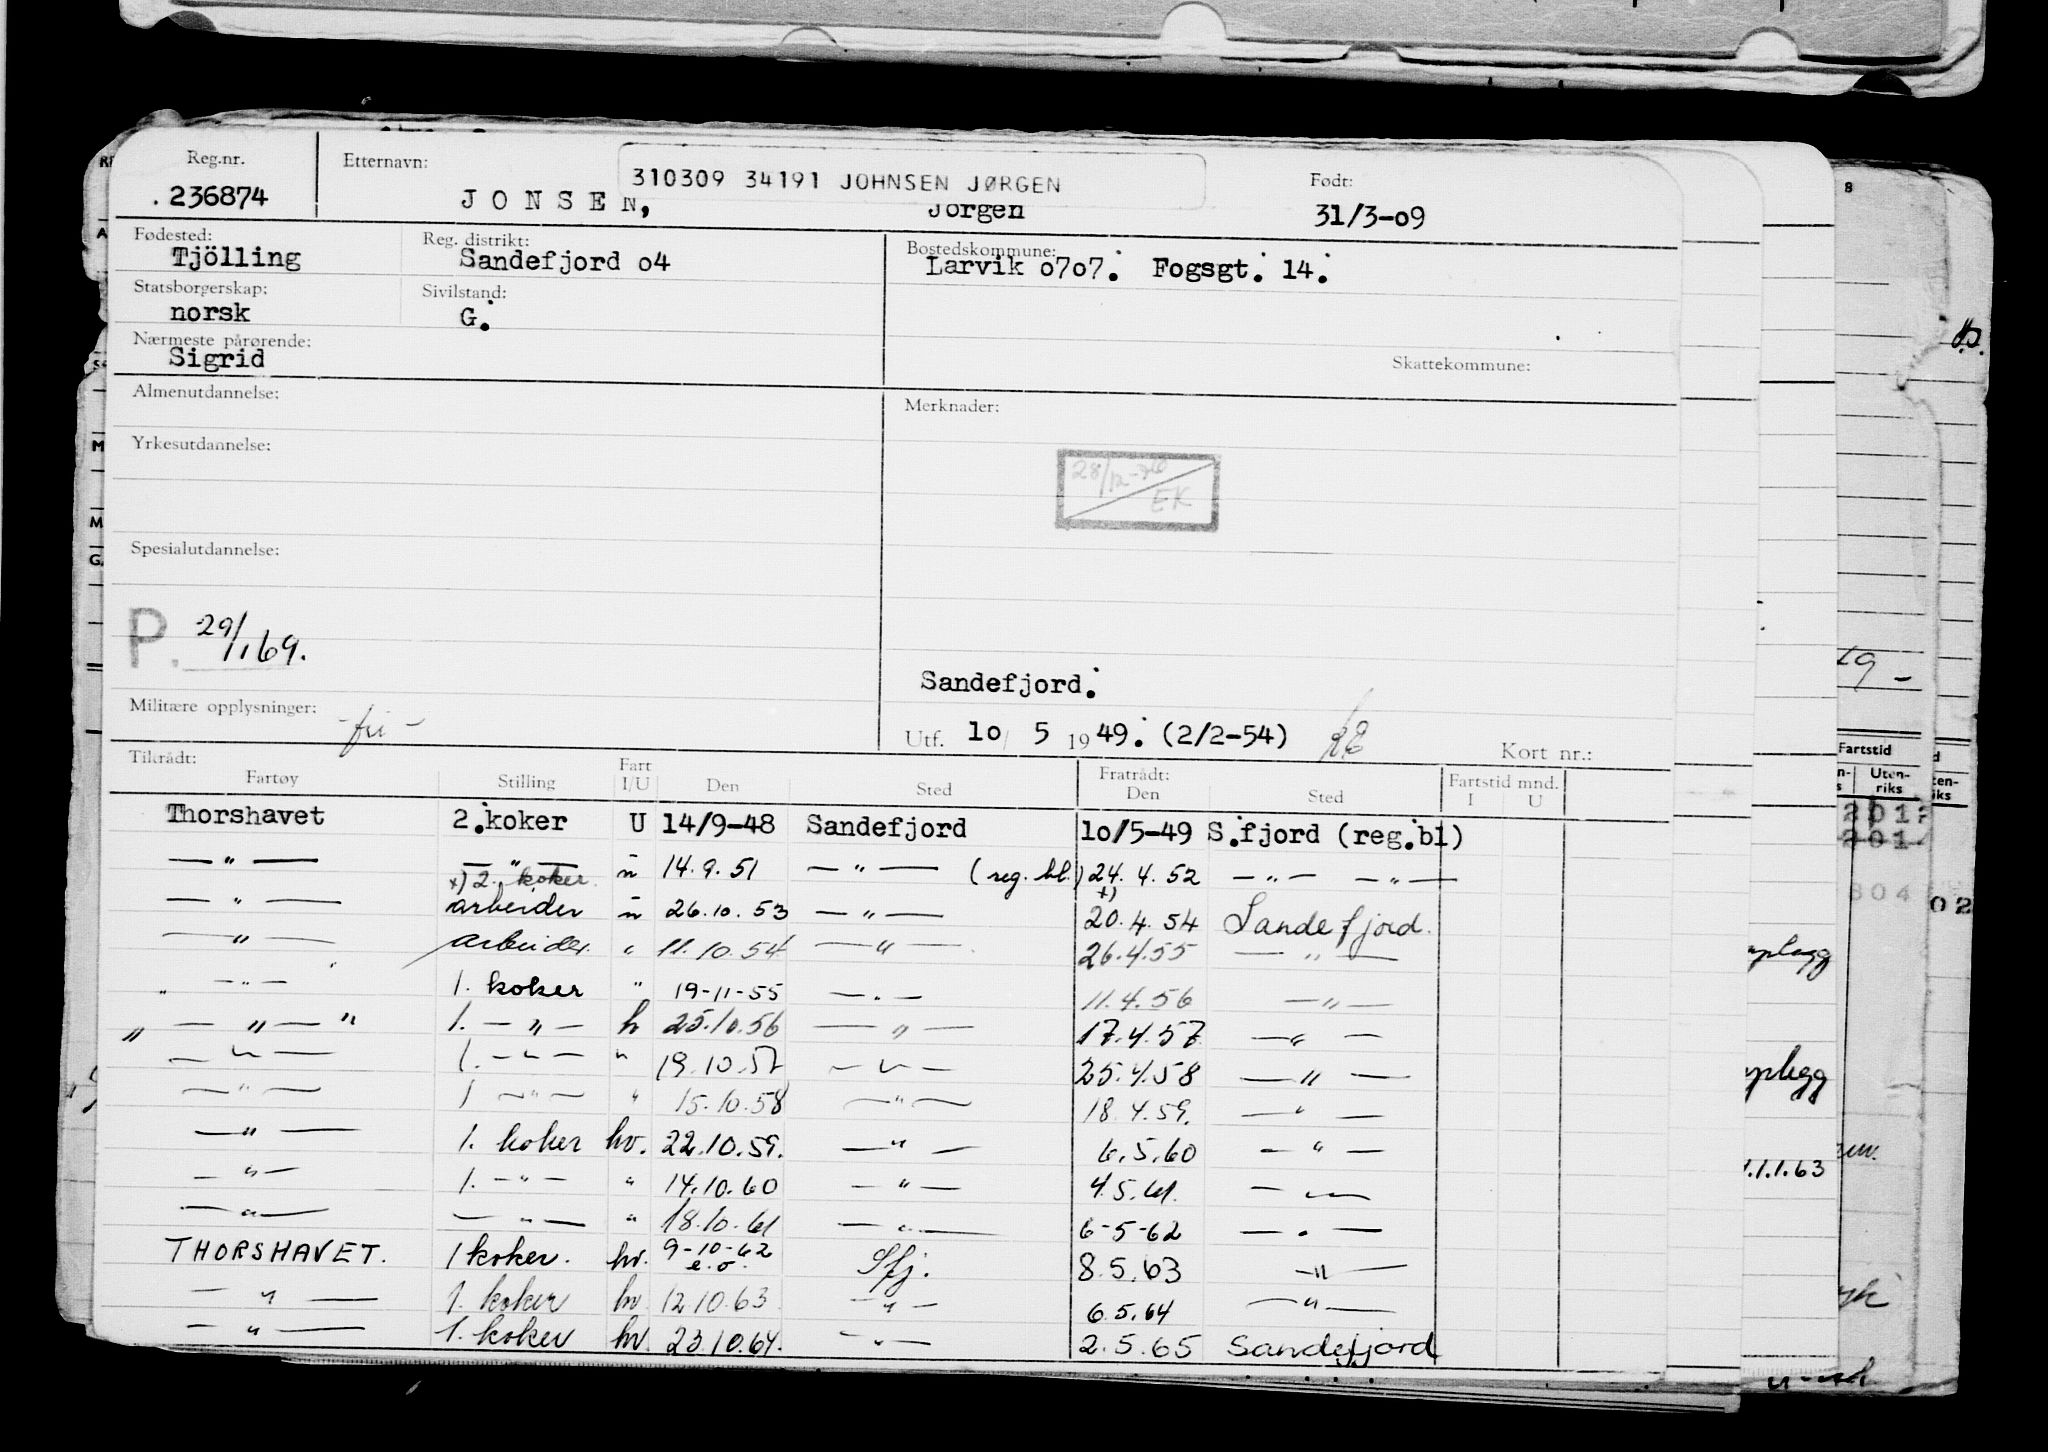 Reg.nr. Etternavn: 310309 34191 JOHNSEN JØRGEN Født:
236874 JONSEN, Jörgen 31/3-09
Fødested: Reg. distrikt: Bostedskommune:
Tjölling Sandefjord o4 Larvik o7o7. Fogsgt. 14.
Statsborgerskap: Sivilstand:
norsk G.
Nærmeste pårørende:
Sigrid Skattekommune:
Almenutdannelse: Merknader:
Yrkesutdannelse:
28/12-70
EK
Spesialutdannelse:
P. 29/11 69.
Sandefjord.
Militære opplysninger: -fri-
Utf. lo 5 1949. (2/2-54) Kort nr.:
Tilrådt: Fart Fratrådt: Fartstid mnd.
Fartøy Stilling I/U Den Sted Den Sted I U
Thorshavet 2.koker U 14/9-48 Sandefjord lo/5-49 S.fjord (reg.bl)
— " — — " — " 14.9.51 — " — (reg. bl.) 24.4.52 — " — — " —
x) 2. koker x)
— " — arbeider " 26.10.53 — " — 20.4.54 Sandefjord.
— " — arbeider " 11.10.54 — " — 26.4.55 — " —
— " — 1. koker " 19-11-55 — " — 11.4.56 — " —
" — " — " 1. — " — h 25.10.56 — " — 17.4.57 — " —
— " — 1. — " — " 19.10.57 — " — 25.4.58 — " —
— " — 1 — " — " 15.10.58 — " — 18.4.59. — " —
— " — 1. koker hv. 22.10.59. — " — 6.5.60 — " —
— " — 1. — " — " 14.10.60 — " — 4.5.61. — " —
— " — — " — " 18.10.61 — " — 6-5-62 — " —
THORSHAVET. 1 koker. hv. 9-10-62 Sfj. 8.5.63 — " —
e.o.
— " — 1. koker hv. 12.10.63 — " — 6.5.64 — " —
— " — 1. koker hv. 23.10.64. — " — 2.5.65 Sandefjord
8
19 -
Fartstid
Uten-
riks
2012
201
804
02
opplegg
opplegg
1.1.63